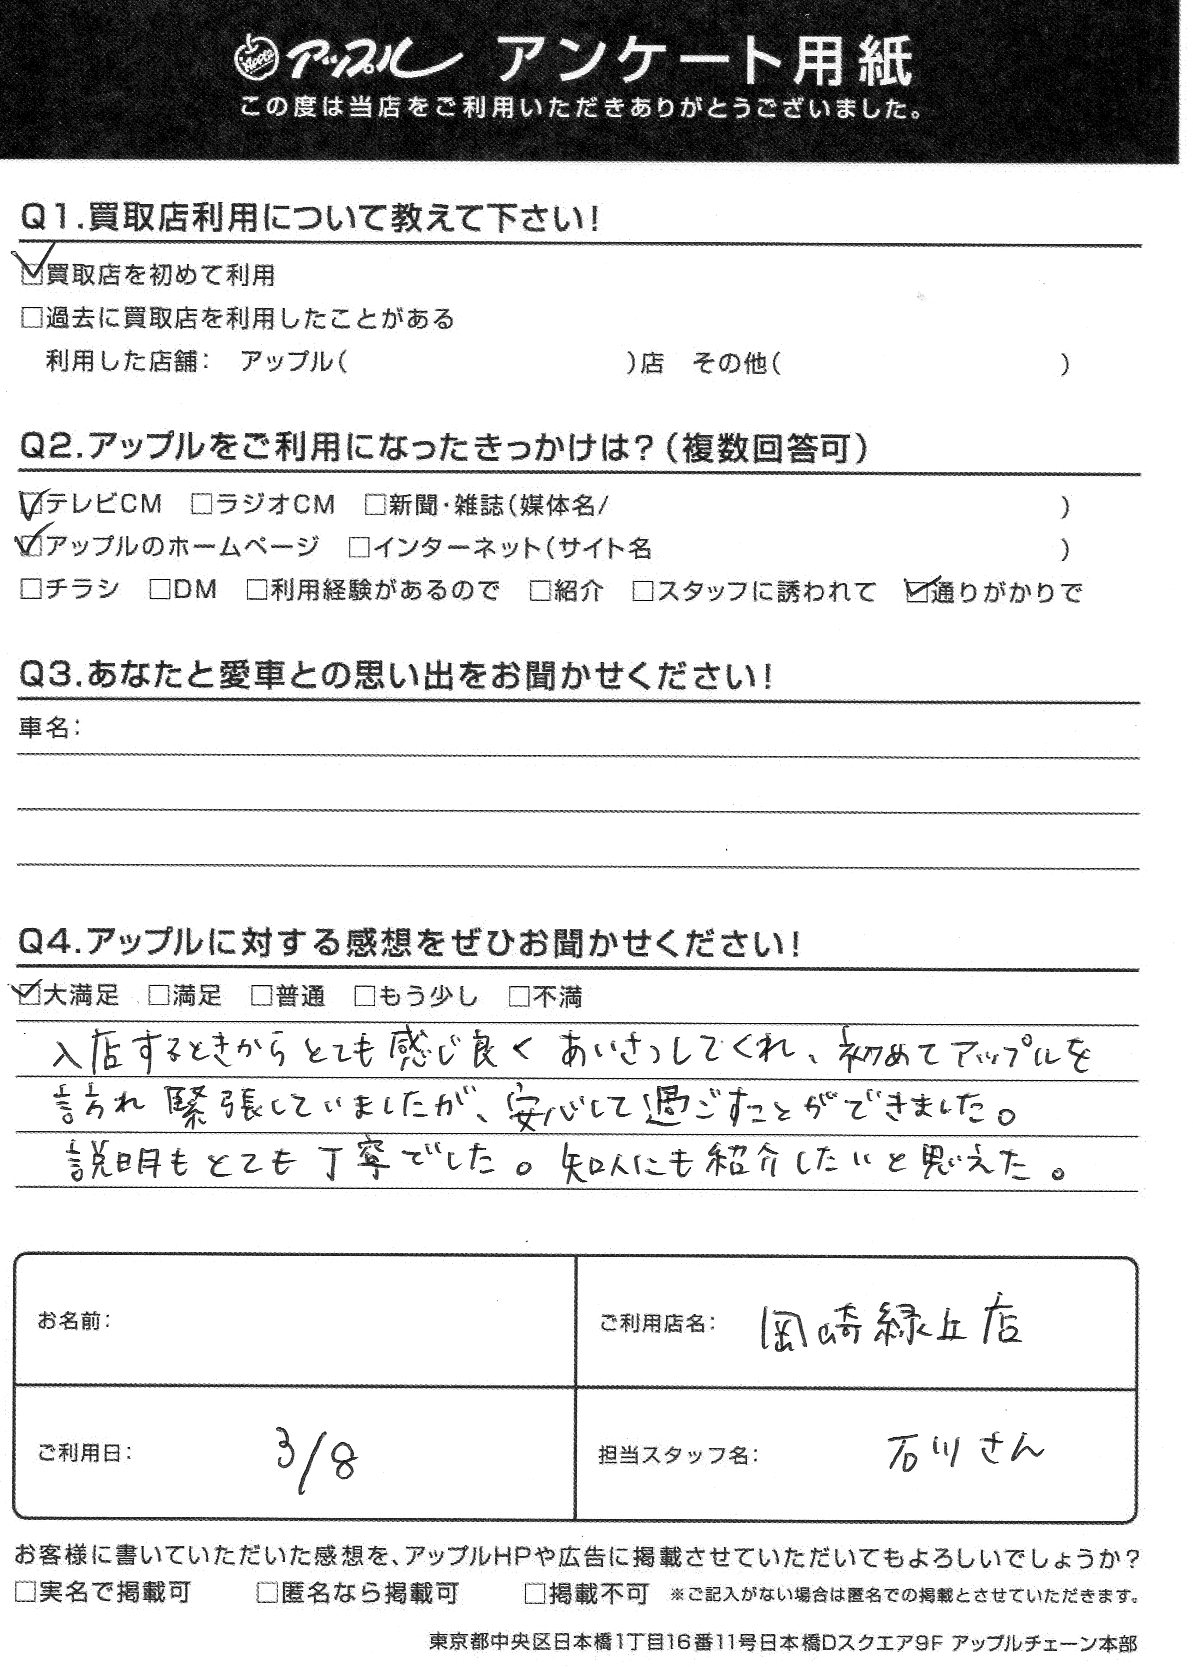 Apple アップル アンケート用紙
この度は当店をご利用いただきありがとうございました。
Q1.買取店利用について教えて下さい!
☑買取店を初めて利用
□過去に買取店を利用したことがある
利用した店舗: アップル( )店 その他( )
Q2.アップルをご利用になったきっかけは?(複数回答可)
☑テレビCM □ラジオCM □新聞・雑誌(媒体名/ )
☑アップルのホームページ □インターネット(サイト名 )
□チラシ □DM □利用経験があるので □紹介 □スタッフに誘われて ☑通りがかりで
Q3.あなたと愛車との思い出をお聞かせください!
車名:
Q4.アップルに対する感想をぜひお聞かせください!
☑大満足 □満足 □普通 □もう少し □不満
入店するときからとても感じ良くあいさつしてくれ、初めてアップルを
訪れ緊張していましたが、安心して過ごすことができました。
説明もとても丁寧でした。知人にも紹介したいと思えた。
お名前:
ご利用店名: 岡崎緑丘店
ご利用日: 3/8
担当スタッフ名: 石川さん
お客様に書いていただいた感想を、アップルHPや広告に掲載させていただいてもよろしいでしょうか?
□実名で掲載可 □匿名なら掲載可 □掲載不可 ※ご記入がない場合は匿名での掲載とさせていただきます。
東京都中央区日本橋1丁目16番11号日本橋Dスクエア9F アップルチェーン本部